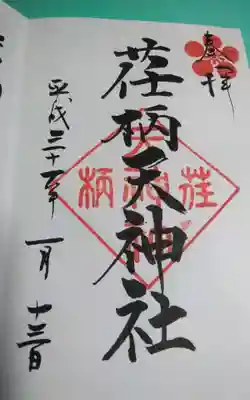 奉拝
荏柄天神社
平成三十一年 一月 十三日
荏柄天神社